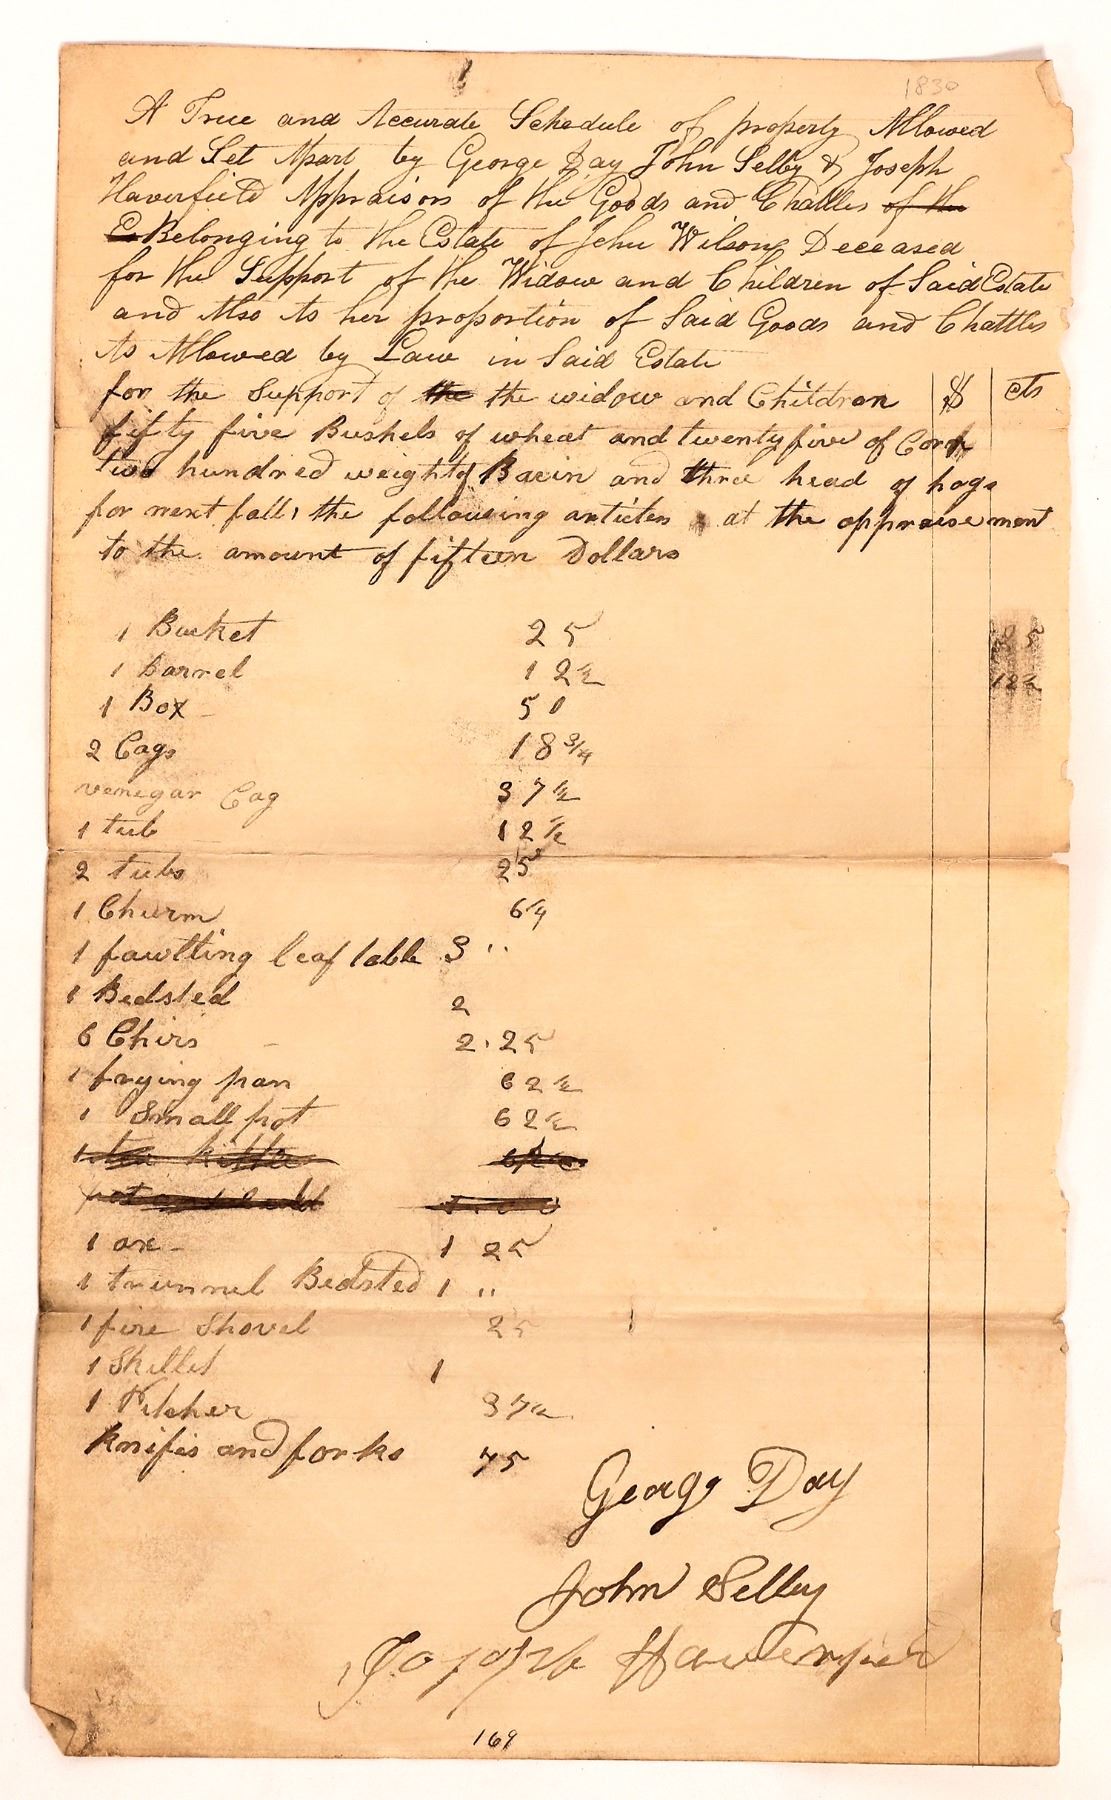 1830
A True and Accurate Schedule of property Allowed
and Set Apart by George Day John Selby & Joseph
Haverfield Appraisors of the Goods and Chattles of the
E Belonging to the Estate of John Wilson Deceased
for the Support of the Widow and Children of Said Estate
and Also to her proportion of Said Goods and Chattles
As Allowed by Law in Said Estate
for the Support of the the widow and Children $ cts
fifty five Bushels of wheat and twenty five of Corn
two hundred weight of Bacin and three head of hogs
for next fall, the following articles at the appraisement
to the amount of fifteen Dollars
1 Bucket 25
1 barrel 12½
1 Box 50
2 Cags 18¾
venegar Cag 37½
1 tub 12½
2 tubs 25
1 Churm 6¼
1 fawlting leaf table 3 "
1 Bedsted 2
6 Chirs 2.25
1 frying pan 62½
1 Small pot 62½
1 tea kittle 62½
1 axe 1 25
1 trunnel Bedsted 1 "
1 fire Shovel 25
1 Skillet 1
1 Pitcher 37½
knifis and forks 75
George Day
John Selby
Joseph Haverfield
169